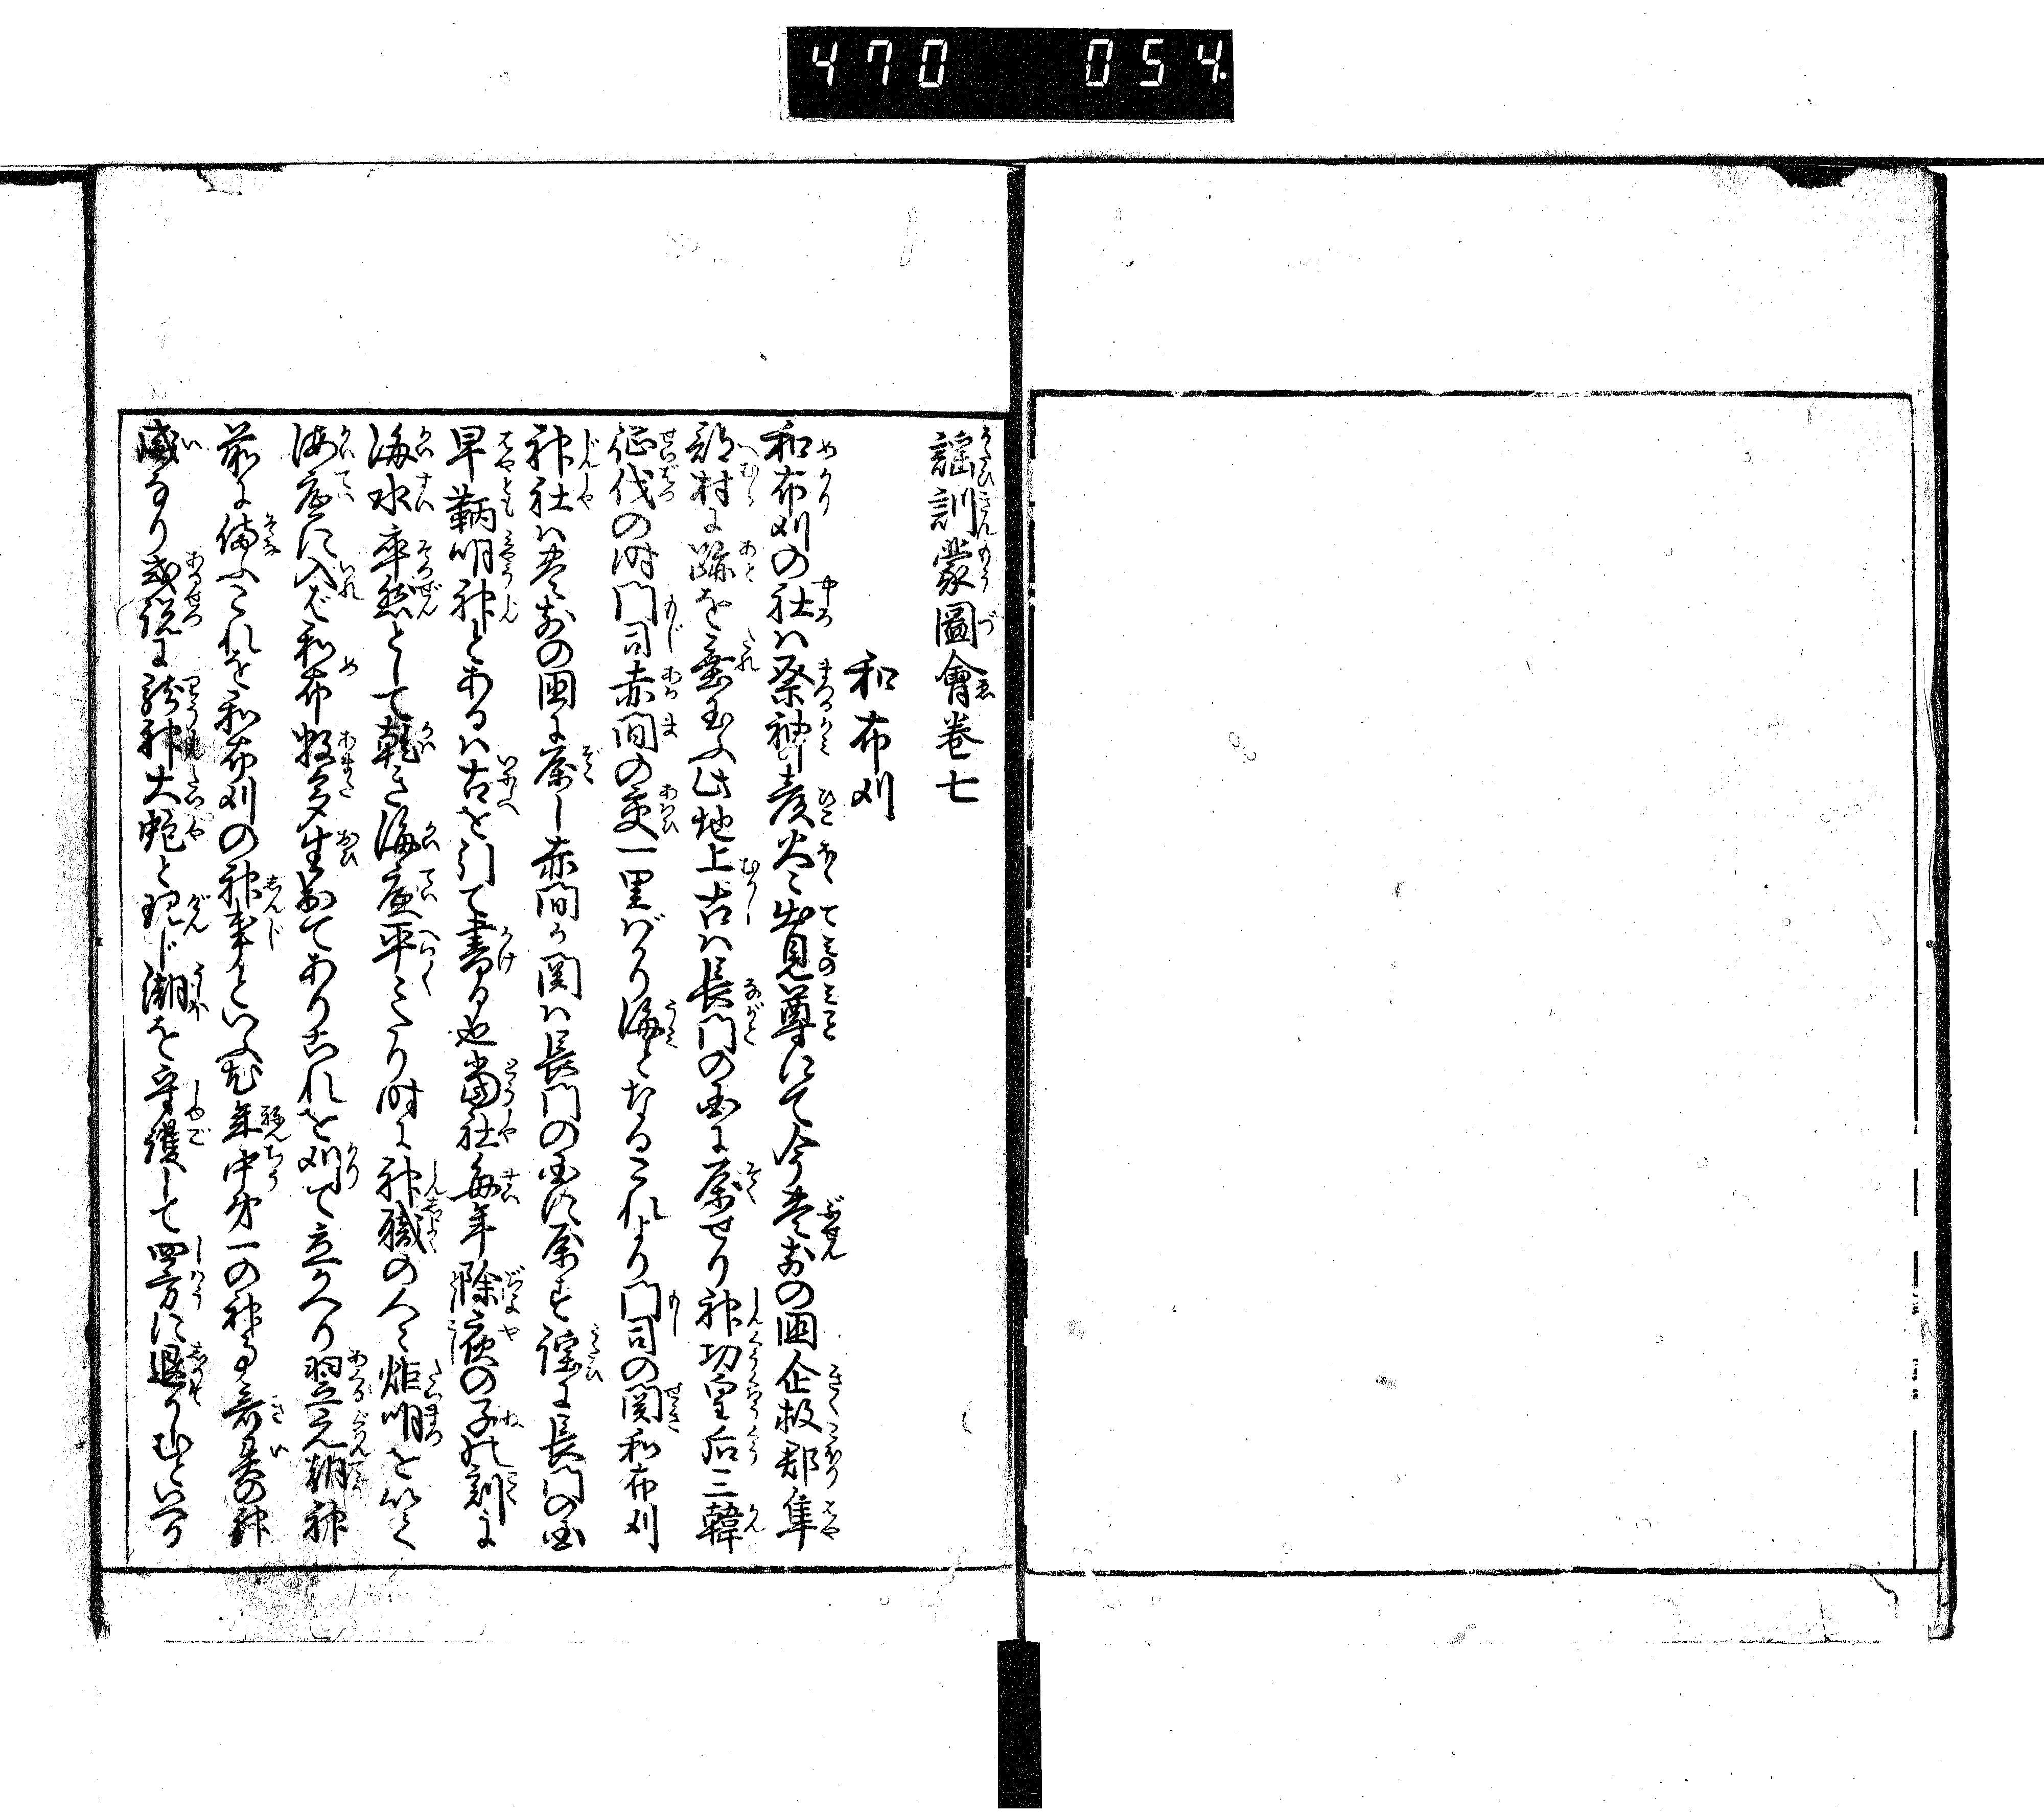 470 054.
謡訓蒙圖會巻七
和布刈
和布刈の社ハ祭神彦火々出見尊にて今豊前の国企救郡隼
部村に跡を垂玉ふ此地上古ハ長門の国に属せり神功皇后三韓
征伐の時門司赤間の交一里ばかり海となるこれより門司の関和布刈
神社ハ豊前の国に属し赤間か関ハ長門の国に属す謡に長門の国
早鞆明神とあるハ古を引て書る也当社毎年除夜の子の刻に
海水卒然として乾き海底平々たり時に神職の人々炬明を以て
海底に入バ和布数多生出てありこれを刈て立かへり翌元朝神
前に備ふこれを和布刈の神事といふ尤年中第一の神事奇異の神
威なり或説に龍神大蛇と現じ潮を守護して四方に退かむといへり